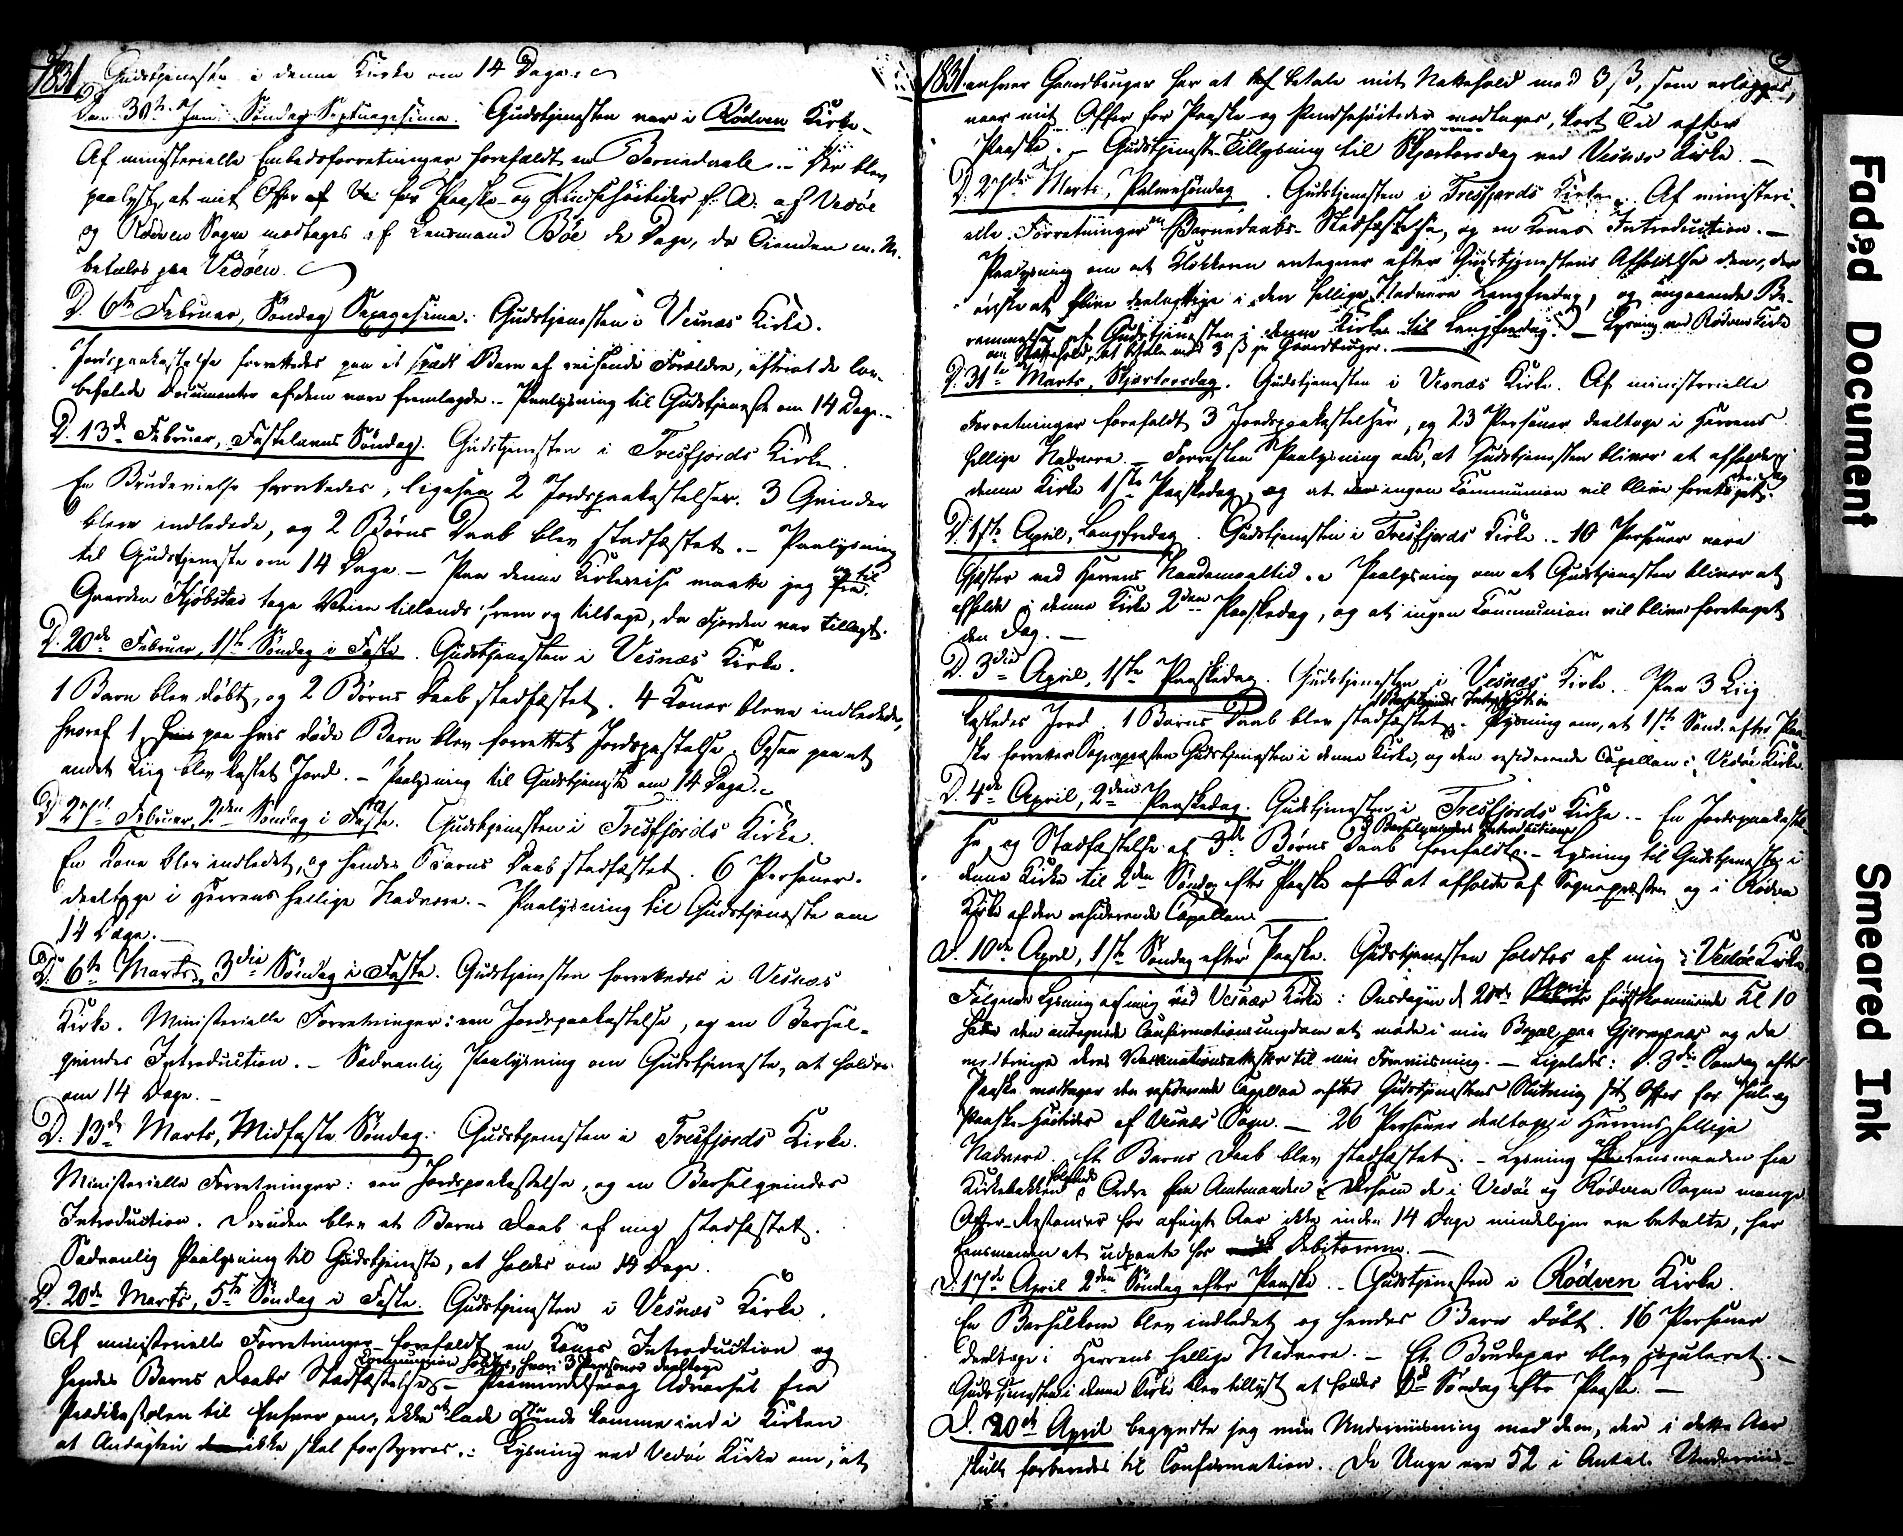 1831
Gudstjeneste i denne Kirke om 14 Dage.
Den 30te Jan: Søndag Septuagesima. Gudstjenesten var i Rødven Kirke.
Af ministerielle Embedsforretninger forefaldt en Barnedaab. Der blev
paalyst, at mit Offer for Paaske og Pindsehøitider f. A. af Vedøe
og Rødven Sogne modtages af Lensmand Bøe de Dage, da Tienden
betales paa Vedøen.
D. 6te Februar, Søndag Sexagesima. Gudstjenesten i Vesnæs Kirke.
Jordspaakastelse forrettedes paa et spædt Barn af reisende Forældre, efterat de lov-
befalede Documenter af dem vare fremlagde. Paalysning til Gudstjeneste om 14 Dage.
D. 13de Februar, Fastelavns Søndag. Gudstjenesten i Tresfjords Kirke.
En Brudevielse forrettedes, ligesaa 2 Jordspaakastelser. 3 Qvinder
bleve indledede, og 2 Børns Daab blev stadfæstet. Paalysning
til Gudstjeneste om 14 Dage. Paa denne Kirkereise maatte jeg fra og til
Gaarden Kjøbstad tage Veien tillands frem og tilbage, da Fjorden var tillagt.
D. 20de Februar, 1ste Søndag i Faste. Gudstjenesten i Vesnæs Kirke.
1 Barn blev døbt, og 2 Børns Daab stadfæstet. 4 Koner bleve indledede,
hvoraf 1, paa hvis døde Barn blev forrettet Jordspaakastelse. Ogsaa paa et
andet Liig blev kastet Jord. Paalysning til Gudstjeneste om 14 Dage.
D. 27de Februar, 2den Søndag i Faste. Gudstjenesten i Tresfjords Kirke.
En Kone blev indledet, og hendes Barns Daab stadfæstet. 6 Personer
deeltoge i Herrens hellige Nadvere. Paalysning til Gudstjeneste om
14 Dage.
D. 6te Marts, 3die Søndag i Faste. Gudstjenesten forrettedes i Vesnæs
Kirke. Ministerielle Forretninger: een Jordspaakastelse, og en Barsel-
qvindes Introduction. Sædvanlig Paalysning om Gudstjeneste, at holdes
om 14 Dage.
D. 13de Marts, Midfaste Søndag. Gudstjenesten i Tresfjords Kirke.
Ministerielle Forretninger: een Jordspaakastelse, og en Barselqvindes
Introduction. Desuden blev et Barns Daab af mig stadfæstet.
Sædvanlig Paalysning til Gudstjeneste, at holdes om 14 Dage.
D. 20de Marts, 5te Søndag i Faste. Gudstjenesten i Vesnæs Kirke.
Af ministerielle Forretninger forefaldt en Kones Introduction og
Communion holdtes, hvori 3 Personer deeltoge
hendes Barns Daabs Stadfæstelse. Paamindelse og Advarsel fra
Prædikestolen til Enhver om, ikke at lade Hunde komme ind i Kirken
at Andagten ikke skal forstyrres. Lysning ved Vedøe Kirke om, at
1831
enhver Gaardbruger har at betale mit Natehold med 3 ß, som erlægges,
naar mit Offer for Paaske og Pindsehøitider modtages, kort Tid efter
Paaske. Gudstjeneste-Tillysning til Skjærtorsdag ved Vesnæs Kirke.
D. 27de Marts, Palmesøndag. Gudstjenesten i Tresfjords Kirke. Af ministeri-
elle Forretninger en Barnedaabs-Stadfæstelse, og en Kones Introduction.
Paalysning om at Klokkeren antegner efter Gudstjenestens Afholdelse dem, der
ønske at blive deelagtige i den hellige Nadvere Langfredag, og angaaende Be-
rammelse af Gudstjenesten i denne Kirke til Langfredag. Lysning ved Rødven Kirke
om Natehold, at betale med 3 ß pr Gaardbruger.
D. 31te Marts, Skjærtorsdag. Gudstjenesten i Vesnæs Kirke. Af ministerielle
Forretninger forefaldt 3 Jordspaakastelser, og 23 Personer deeltoge i Herrens
hellige Nadvere. Forresten Paalysning om, at Gudstjenesten bliver at afholde i
denne Kirke 1ste Paaskedag, og at ingen Communion vil blive foretaget den Dag.
D. 1ste April, Langfredag. Gudstjenesten i Tresfjords Kirke. 10 Personer vare
Gjæster ved Herrens Naademaaltid. Paalysning om at Gudstjenesten bliver at
afholde i denne Kirke 2den Paaskedag, og at ingen Communion vil blive foretaget
den Dag.
D. 3die April, 1ste Paaskedag. Gudstjenesten i Vesnæs Kirke. Paa 3 Liig
Barselqvindes Introduction
kastedes Jord. 1 Barns Daab blev stadfæstet. Lysning om, at 1ste Sønd. efter Paa-
ske forretter Sognepræsten Gudstjenesten i denne Kirke, og den residerende Capellan i Vedøe Kirke.
D. 4de April, 2den Paaskedag. Gudstjenesten i Tresfjords Kirke. En Jordspaakastel-
Barselqvinders Introduction
se, og Stadfæstelse af 3de Børns Daab forefaldt. Lysning til Gudstjeneste i
denne Kirke til 2den Søndag efter Paaske at afholde af Sognepræsten og i Rødven
Kirke af den residerende Capellan.
D. 10de April, 1ste Søndag efter Paaske. Gudstjenesten holdtes af mig i Vedøe Kirke.
Følgende Lysning af mig ved Vesnæs Kirke: Onsdagen d. 20de April førstkommende Kl 10
har den antegnede Confirmationsungdom at møde i min Bopæl paa Gjermundnæs og da
medbringe deres Vaccinationsattester til min Foreviisning. Ligeledes: d. 3die Søndag efter
Paaske modtager den residerende Capellan efter Gudstjenestens Slutning sit Offer for Jule og
Paaske Høitider af Vesnæs Sogn. 26 Personer deeltoge i Herrens hellige
Nadvere. Et Barns Daab blev stadfæstet. Lysning Lensmanden fra
Kirkebakken ifølge Ordre fra Amtmanden: Dersom de i Vedøe og Rødven Sogne mange
Offer-Restancer for afvigte Aar ikke inden 14 Dage mindeligen ere betalte, har
Lensmanden at udpante hos Debitorerne.
D. 17de April 2den Søndag efter Paaske. Gudstjenesten i Rødven Kirke.
En Barselkone blev indledet og hendes Barn døbt. 16 Personer
deeltoge i Herrens hellige Nadvere. Et Brudepar blev copuleret.
Gudstjeneste i denne Kirke blev tillyst at holdes Søndag efter Paaske.
D. 20de April begyndte jeg min Underviisning med dem, der i dette Aar
skulle forberedes til Confirmation. De Unge ere 52 i Antal. Underviis-
Faded Document
Smeared Ink